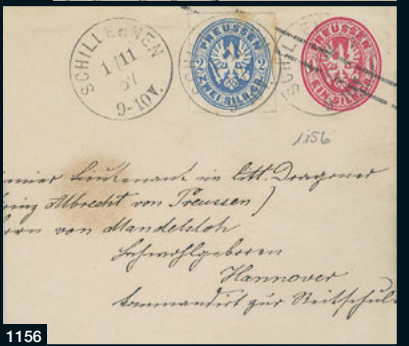 SCHILLEHNEN
1/11
67
9-10V.
PREUSSEN
2 2
ZWEI SILB.GR.
PREUSSEN
EIN SILB.GR.
1156
mier Lieutenant im Litt. Dragoner
rinz Albrecht von Preussen)
rrn von Mandelsloh
Hochwohlgeboren
Hannover
kommandirt zur Reitschule
1156